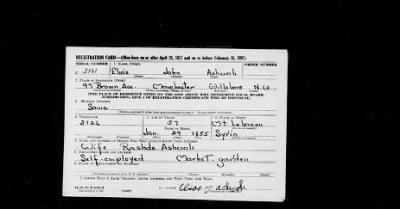 REGISTRATION CARD—(Men born on or after April 28, 1877 and on or before February 16, 1897)
SERIAL NUMBER 1. NAME (Print) ORDER NUMBER
U 3161 Elias John Ashooh
2. PLACE OF RESIDENCE (Print)
95 Brown Ave. Manchester Hillsboro N.H.
[THE PLACE OF RESIDENCE GIVEN ON THE LINE ABOVE WILL DETERMINE LOCAL BOARD
JURISDICTION; LINE 2 OF REGISTRATION CERTIFICATE WILL BE IDENTICAL]
3. MAILING ADDRESS
Same
4. TELEPHONE 5. AGE IN YEARS 6. PLACE OF BIRTH
3126 57 Mt. Lebanon
DATE OF BIRTH
Jan. 29 1885 Syria
7. NAME AND ADDRESS OF PERSON WHO WILL ALWAYS KNOW YOUR ADDRESS
Wife
8. EMPLOYER'S NAME AND ADDRESS
Self-employed Market-garden
9. PLACE OF EMPLOYMENT OR BUSINESS
I AFFIRM THAT I HAVE VERIFIED ABOVE ANSWERS AND THAT THEY ARE TRUE.